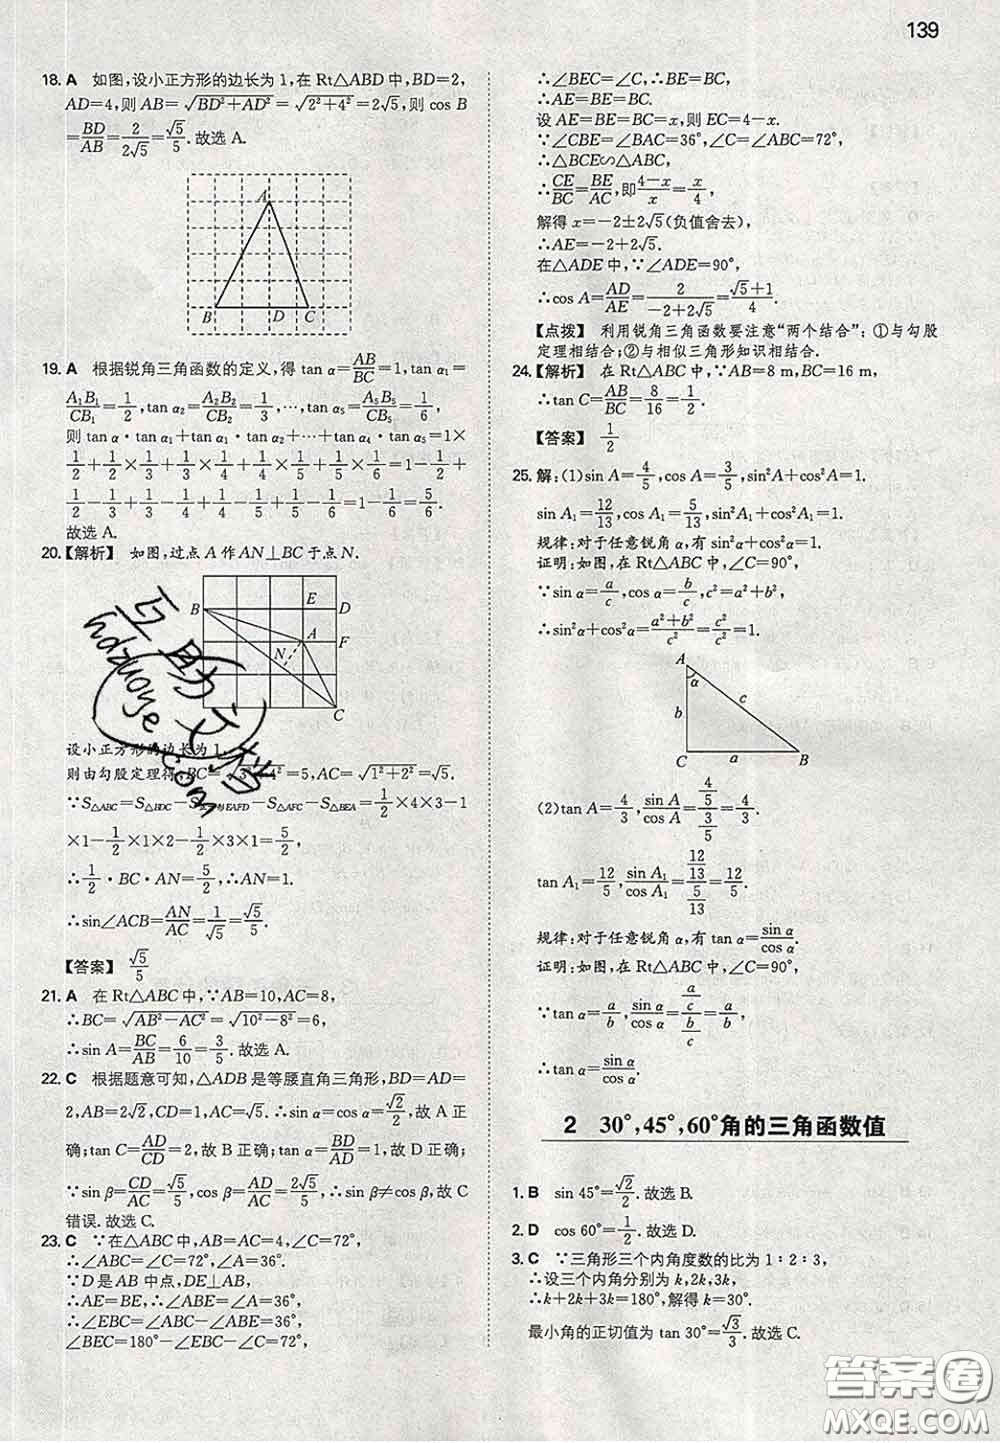 139
18. A 如图,设小正方形的边长为1,在Rt△ABD中,BD=2,
AD=4,则AB=√(BD²+AD²)=√(2²+4²)=2√5,则cos B
=BD/AB=2/(2√5)=√5/5.故选A.
A
B D C
19. A 根据锐角三角函数的定义,得tan α=AB/BC=1,tan α₁=
A₁B₁/CB₁=1/2,tan α₂=A₂B₂/CB₂=1/3,…,tan α₅=A₅B₅/CB₅=1/6,
则tan α·tan α₁+tan α₁·tan α₂+…+tan α₄·tan α₅=1×
1/2+1/2×1/3+1/3×1/4+1/4×1/5+1/5×1/6=1-1/2+
1/2-1/3+1/3-1/4+1/4-1/5+1/5-1/6=1-1/6=5/6.
故选A.
20.【解析】 如图,过点A作AN⊥BC于点N.
E
B D
A F
N
C
设小正方形的边长为1,
则由勾股定理得,BC=√(3²+4²)=5,AC=√(1²+2²)=√5.
∵S△ABC=S△BDC-S EAFD-S△AFC-S△BEA=1/2×4×3-1
×1-1/2×1×2-1/2×3×1=5/2,
∴1/2·BC·AN=5/2,∴AN=1.
∴sin∠ACB=AN/AC=1/√5=√5/5.
【答案】 √5/5
21. A 在Rt△ABC中,∵AB=10,AC=8,
∴BC=√(AB²-AC²)=√(10²-8²)=6,
∴sin A=BC/AB=6/10=3/5.故选A.
22. C 根据题意可知,△ADB是等腰直角三角形,BD=AD=
2,AB=2√2,CD=1,AC=√5.∴sin α=cos α=√2/2,故A正
确;tan C=AD/CD=2,故B正确;tan α=BD/AD=1,故D正确;
∵sin β=CD/AC=√5/5,cos β=AD/AC=2√5/5,∴sin β≠cos β,故C
错误.故选C.
23. C ∵在△ABC中,AB=AC=4,∠C=72°,
∴∠ABC=∠C=72°,∠A=36°,
∵D是AB中点,DE⊥AB,
∴AE=BE,∴∠ABE=∠A=36°,
∴∠EBC=∠ABC-∠ABE=36°,
∠BEC=180°-∠EBC-∠C=72°,
∴∠BEC=∠C,∴BE=BC,
∴AE=BE=BC.
设AE=BE=BC=x,则EC=4-x.
∵∠CBE=∠BAC=36°,∠C=∠ABC=72°,
∴△BCE∽△ABC,
∴CE/BC=BE/AC,即(4-x)/x=x/4,
解得x=-2±2√5(负值舍去),
∴AE=-2+2√5.
在△ADE中,∵∠ADE=90°,
∴cos A=AD/AE=2/(-2+2√5)=(√5+1)/4.
【点拨】 利用锐角三角函数要注意“两个结合”:①与勾股
定理相结合;②与相似三角形知识相结合.
24.【解析】 在Rt△ABC中,∵AB=8 m,BC=16 m,
∴tan C=AB/BC=8/16=1/2.
【答案】 1/2
25. 解:(1)sin A=4/5,cos A=3/5,sin²A+cos²A=1.
sin A₁=12/13,cos A₁=5/13,sin²A₁+cos²A₁=1.
规律:对于任意锐角α,有sin²α+cos²α=1.
证明:如图,在Rt△ABC中,∠C=90°,
∵sin α=a/c,cos α=b/c,c²=a²+b²,
∴sin²α+cos²α=(a²+b²)/c²=c²/c²=1.
A
α
b c
C a B
(2)tan A=4/3,sin A/cos A=(4/5)/(3/5)=4/3.
tan A₁=12/5,sin A₁/cos A₁=(12/13)/(5/13)=12/5.
规律:对于任意锐角α,有tan α=sin α/cos α.
证明:如图,在Rt△ABC中,∠C=90°,
∵tan α=a/b,sin α/cos α=(a/c)/(b/c)=a/b,
∴tan α=sin α/cos α.
2 30°,45°,60°角的三角函数值
1. B sin 45°=√2/2.故选B.
2. D cos 60°=1/2.故选D.
3. C ∵三角形三个内角度数的比为1∶2∶3,
∴设三个内角分别为k,2k,3k,
∴k+2k+3k=180°,解得k=30°.
最小角的正切值为tan 30°=√3/3.故选C.
hdzuoye
.com
答案圈
MXQE.COM